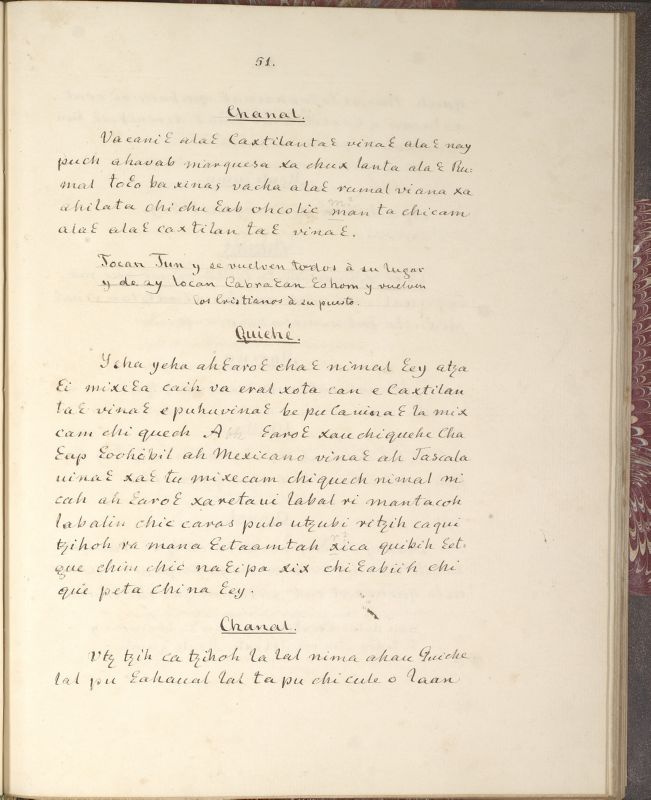 51.
Chanal.
Vacaniƹ alaƹ Caxtilantaƹ vinaƹ alaƹ nay
puch ahavab marquesa xa chux lanta alaƹ Ru-
mal toƹo ba xinas vacha alaƹ rumal viana xa
ahilata chi chu ƹab ohcolic man ta chicam
alaƹ alaƹ caxtilan taƹ vinaƹ.
Tocan Tun y se vuelven todos à su lugar
y de ay locan Cabraƹan ƹohom y vuelven
los Cristianos à su puesto.
Quiché.
Ycha ycha ahƹaroƹ chaƹ nimal ƹey atza
ƹi mixeƹa caih va eral xota can e Caxtilan
taƹ vinaƹ epuhuvinaƹ be pu Cavinaƹ la mix
cam chi quech A ƹaroƹ xau chiquehe Cha
ƹap ƹoohobil ah Mexicano vinaƹ ah Tascala
uinaƹ xaƹ tu mixecam chiquech nimal ni
cah ah ƹaroƹ xaretaui labal ri mantacoh
labalin chic caras puto utzubi ritzih caqui
tzihoh ra mana ƹetaamtah xica quibih ƹet-
que chim chic naƹipa xix chi ƹabiih chi
que peta China ƹey.
Chanal.
Vtz tzih ca tzihoh la lal nima ahau Quiche
lal pu ƹahaual lal ta pu chi cule o laan